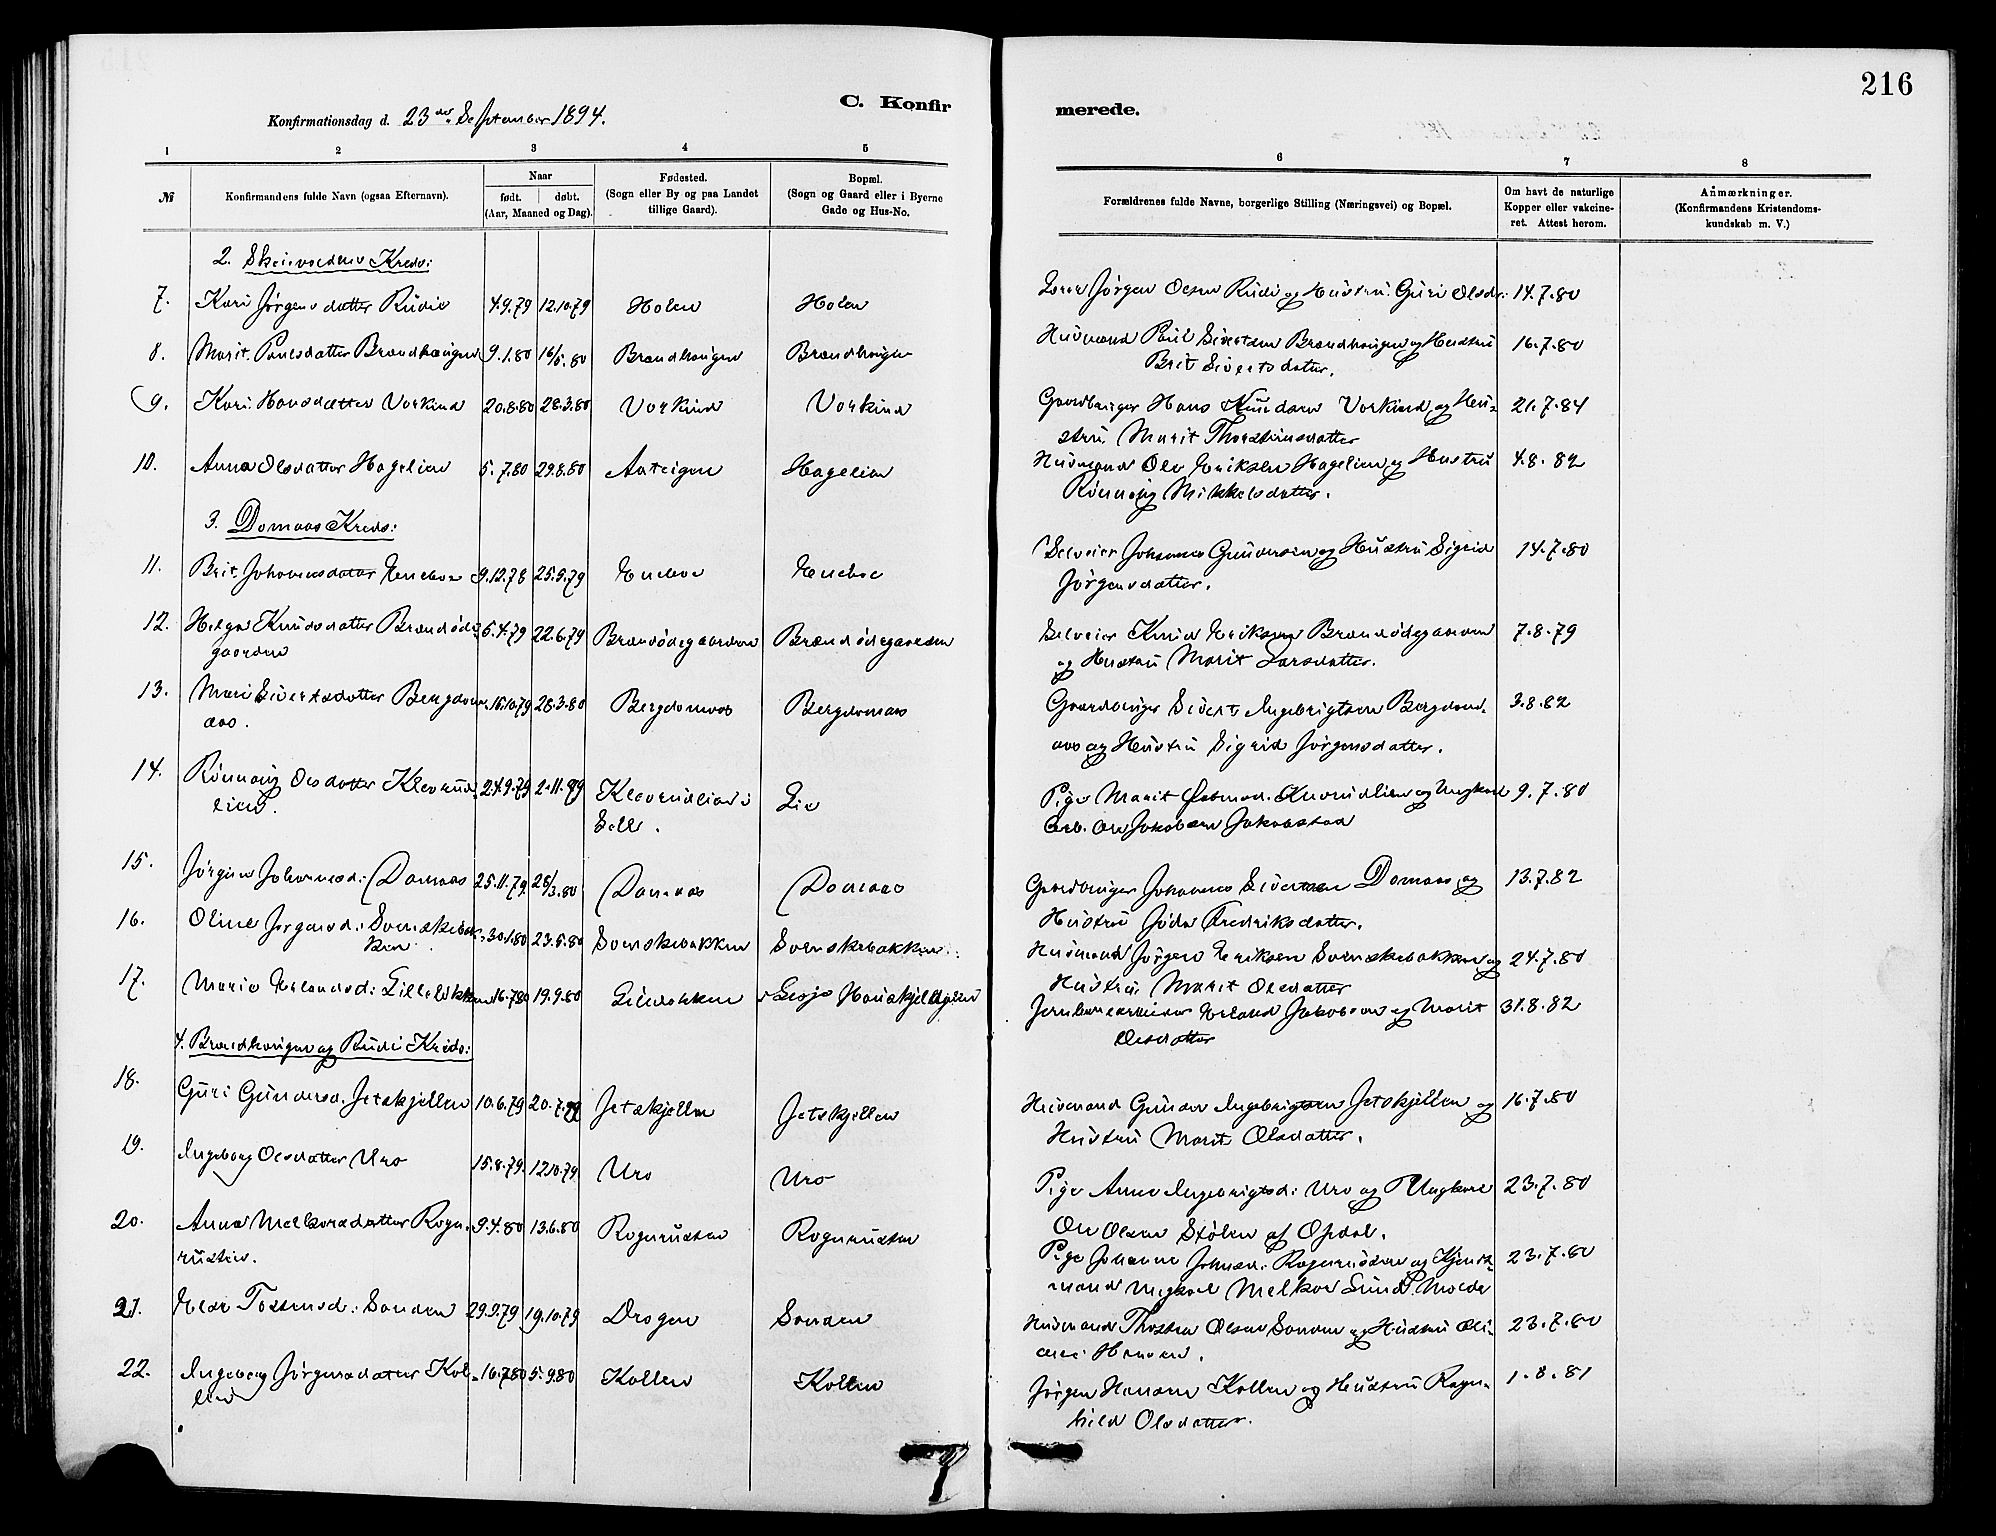 216
C. Konfir
merede.
Konfirmationsdag d. 23de September 1894.
1 2 3 4 5 6 7 8
№ Konfirmandens fulde Navn (ogsaa Efternavn). Naar født. døbt. (Aar, Maaned og Dag). Fødested. (Sogn eller By og paa Landet tillige Gaard). Bopæl. (Sogn og Gaard eller i Byerne Gade og Hus-No.
Forældrenes fulde Navne, borgerlige Stilling (Næringsvei) og Bopæl. Om havt de naturlige Kopper eller vakcineret. Attest herom. Anmærkninger. (Konfirmandens Kristendomskundskab m. V.)
2. Kreds:
7. Kari Jørgensdatter Rudie 4.9.79 12.10.79 Holen Holen Jørgen Olsen Rudi og Hustru Guri Olsdr: 14.7.80
8. Marit Paulsdatter Brændhaugen 9.1.80 16/5.80 Brændhaugen Brændhaugen Husmand Paul Sivertsen Brændhaugen og Hustru 16.7.80
Brit Sivertsdatter.
9. Kari Hansdatter Vorkind 20.8.80 28.3.80 Vorkind Vorkind Gaardbruger Hans Knudsen Vorkind og Hu- 21.7.84
stru Marit Thorstensdatter
10. Anna Olsdatter Hagelien 5.7.80 29.8.80 Hagelien Husmand Ole Eriksen Hagelien og Hustru 4.8.82
Rønnaug Mikkelsdatter.
3. Domaas Kreds:
11. Brit Johannesdatter Eneboe 9.12.78 25.5.79 Eneboe Eneboe Selveier Johannes Gundersen og Hustru Sigrid 14.7.80
Jørgensdatter.
12. Helga Knudsdatter Brændøde- 5.4.79 22.6.79 Brændødegaarden Brændødegaarden Selveier Knud Eriksen Brændødegaarden 7.8.79
gaarden og Hustru Marit Larsdatter.
13. Mari Sivertsdatter Bergdom- 15.10.79 28.3.80 Bergdomaas Bergdomaas Gaardbruger Sivert Ingebrigtsen Bergdom- 3.8.82
aas. aas og Hustru Sigrid Jørgensdatter.
14. Rønnaug Olsdatter Klevrud- 24.9.79 2.11.79 Klevrudlien i Lie Pige Marit og Ungkarl 9.7.80
lien. Sell. Arb. Ole Jakobsen Jakobstad
15. Jørgine Johannesd: Domaas 25.11.79 28/3.80 Domaas Domaas Gaardbruger Johannes Sivertsen Domaas og 13.7.82
Hustru Jøda Fredriksdatter.
16. Oline Jørgensd: Svenskebak- 30.1.80 23.5.80 Svenskebakken Svenskebakken Husmand Jørgen Eriksen Svenskebakken og 24.7.80
ken Hustru Marit Olsdatter
17. Marie Erlandsd: Lillebakken 16.7.80 19.9.80 Lillebakken Lesje Erland Jakobsen og Marit 31.8.82
Olsdatter
4. Brændhaugen og Rudi Kreds:
18. Guri Gundersd. Jetskjellen 10.6.79 20.7.79 Jetskjellen Jetskjellen Husmand Gunder Ingebrigtsen Jetskjellen og 16.7.80
Hustru Marit Olsdatter.
19. Ingeborg Olsdatter Uro 15.8.79 12.10.79 Uro Uro Pige Anne Ingebrigtsd: Uro og Ungkarl 23.7.80
Ole Olsen Stølen af Opdal.
20. Anna Melkorsdatter Rogn- 9.4.80 13.6.80 Rognrusten Rognrusten Pige Johanne Johnsd: Rognrusten og 23.7.80
rusten. mand Ungkarl Melkor Lund Molde
21. Tostensd: Sanden 29.9.79 19.10.79 Sanden Husmand Thosten Olsen Sanden og Hustru 23.7.80
22. Ingeborg Jørgensdatter Kol- 16.7.80 5.9.80 Kollen Kollen Jørgen Hansen Kollen og Hustru Ragn- 1.8.81
len hild Olsdatter.